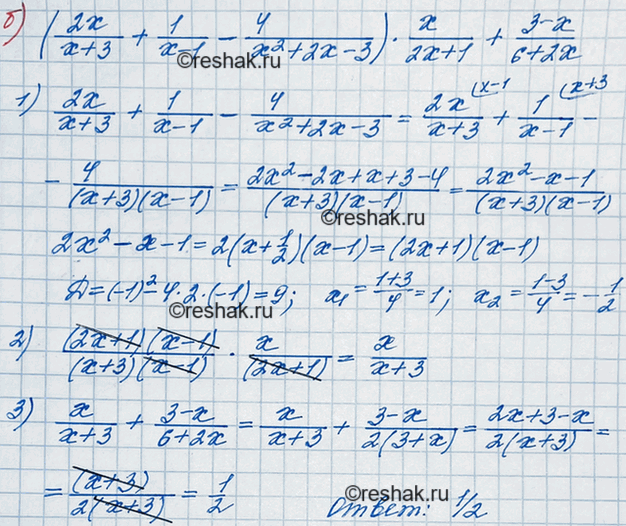 б) (2x/(x+3) + 1/(x-1) - 4/(x²+2x-3)) · x/(2x+1) + (3-x)/(6+2x)
©reshak.ru
1) 2x/(x+3) + 1/(x-1) - 4/(x²+2x-3) = 2x/(x+3) (x-1 + 1/(x-1) (x+3 -
- 4/((x+3)(x-1)) = (2x²-2x+x+3-4)/((x+3)(x-1)) = (2x²-x-1)/((x+3)(x-1))
©reshak.ru
2x²-x-1 = 2(x+1/2)(x-1) = (2x+1)(x-1)
Д=(-1)²-4·2·(-1)=9; x₁=(1+3)/4=1; x₂=(1-3)/4=-1/2
©reshak.ru
2) (2x+1)(x-1)/((x+3)(x-1)) · x/(2x+1) = x/(x+3)
3) x/(x+3) + (3-x)/(6+2x) = x/(x+3) + (3-x)/(2(3+x)) = (2x+3-x)/(2(x+3)) =
©reshak.ru
= (x+3)/(2(x+3)) = 1/2 Ответ: 1/2